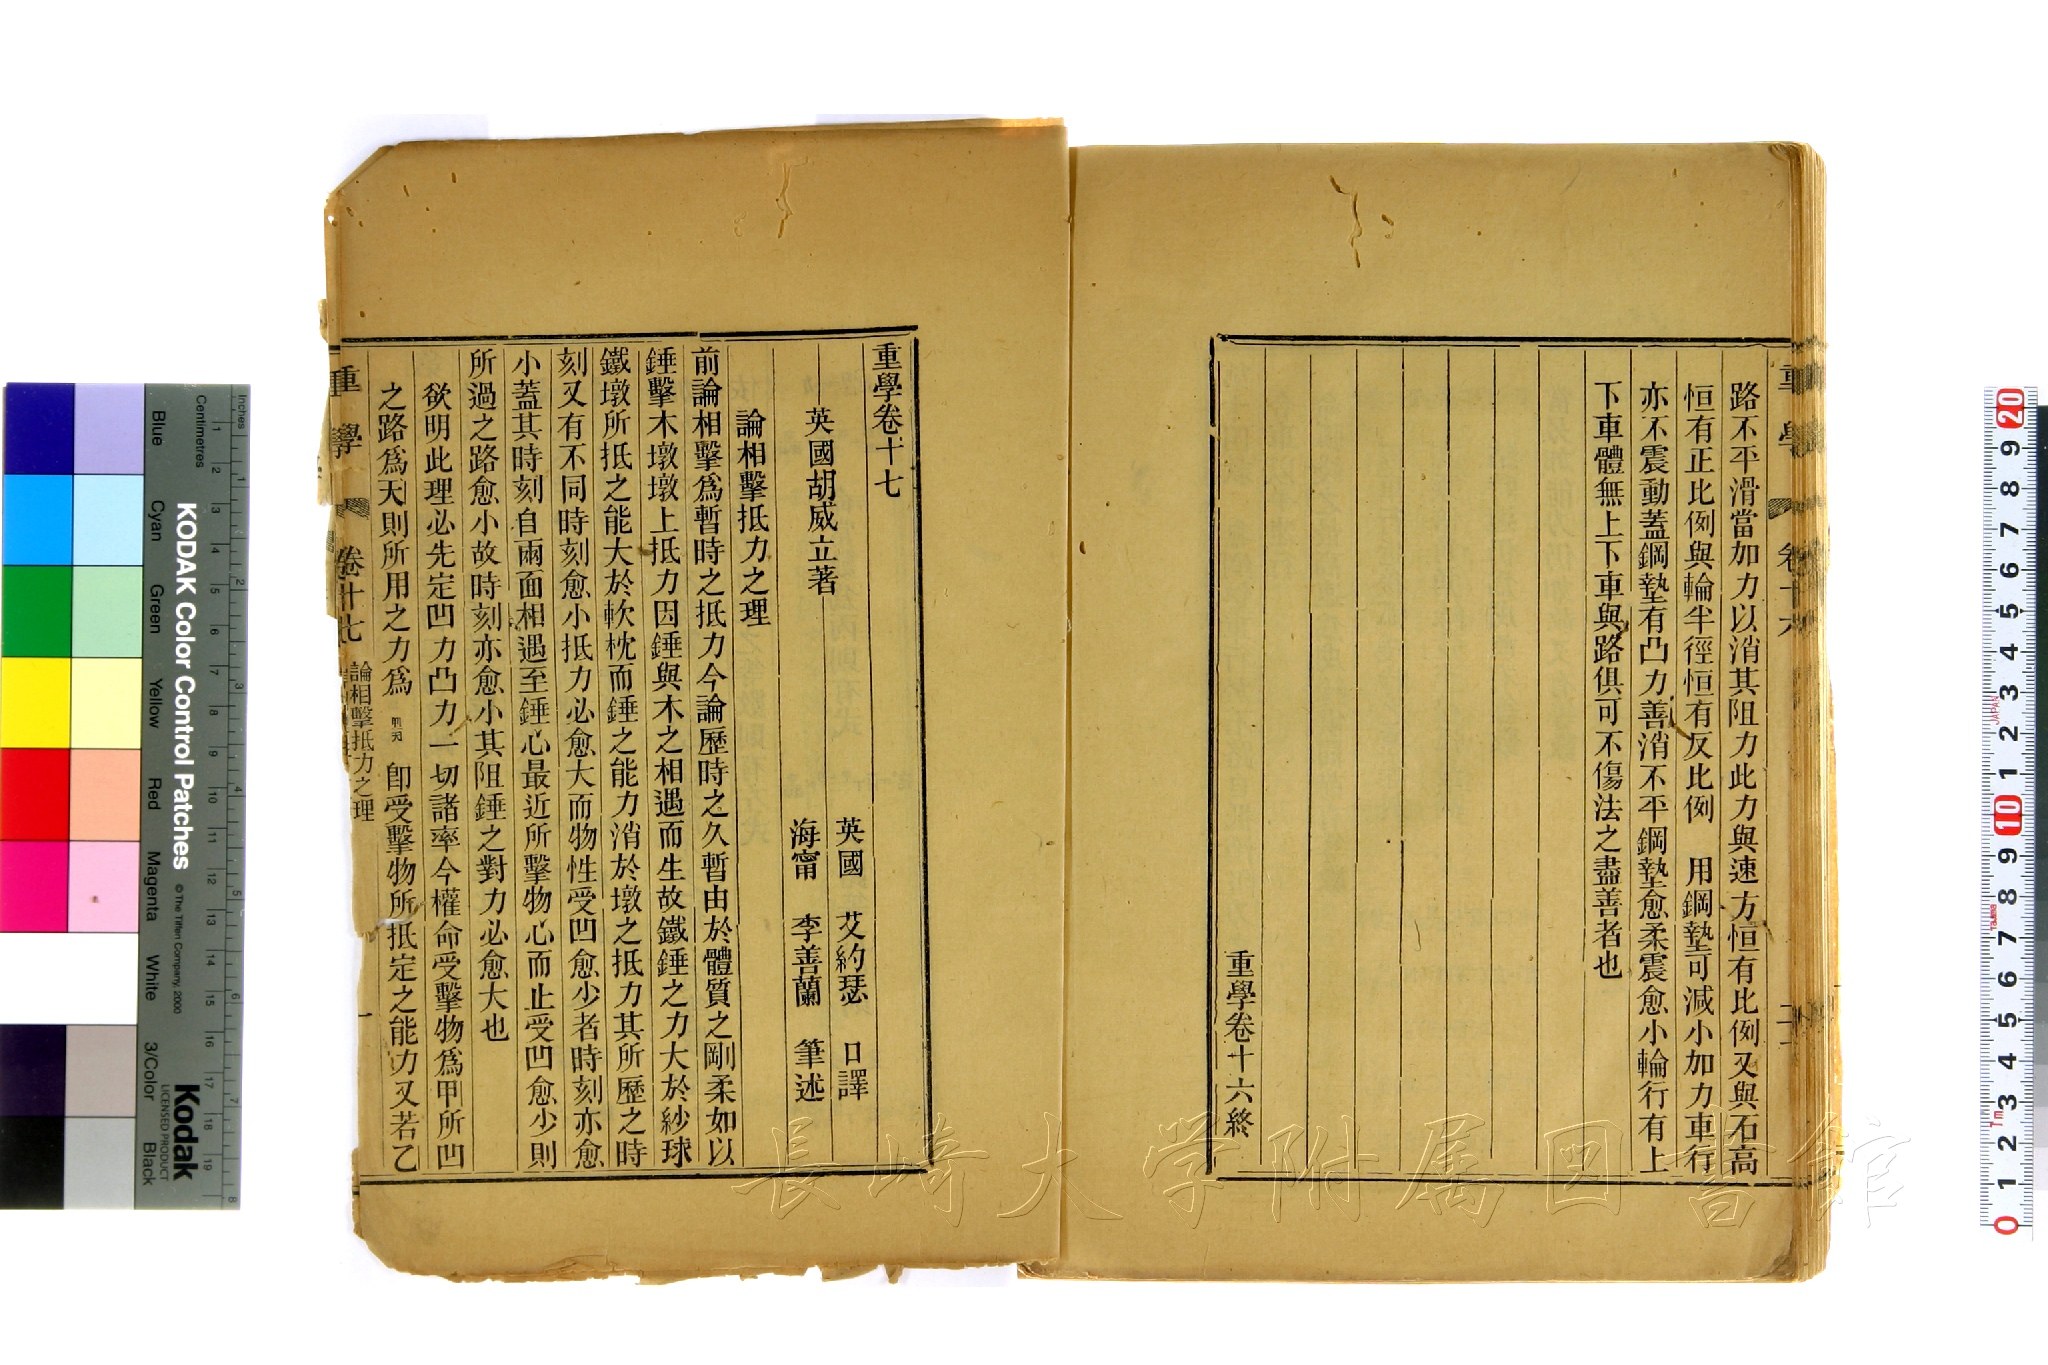 路不平滑當加力以消其阻力此力與速方恒有比例又與石高
恒有正比例與輪半徑恒有反比例　用鋼墊可減小加力車行
亦不震動蓋鋼墊有凸力善消不平鋼墊愈柔震愈小輪行有上
下車體無上下車與路俱可不傷法之盡善者也
重學卷十六終
重學卷十七
英國　艾約瑟　口譯
英國胡威立著
海甯　李善蘭　筆述
論相擊抵力之理
前論相擊爲暫時之抵力今論歷時之久暫由於體質之剛柔如以
錘擊木墩墩上抵力因錘與木之相遇而生故鐵錘之力大於紗球
鐵墩所抵之能大於軟枕而錘之能力消於墩之抵力其所歷之時
刻又有不同時刻愈小抵力必愈大而物性受凹愈少者時刻亦愈
小蓋其時刻自兩面相遇至錘心最近所擊物心而止受凹愈少則
所過之路愈小故時刻亦愈小其阻錘之對力必愈大也
欲明此理必先定凹力凸力一切諸率今權命受擊物爲甲所凹
之路爲天則所用之力爲　卽受擊物所抵定之能力又若乙
重學　卷十七　論相擊抵力之理　一
KODAK Color Control Patches
© The Tiffen Company, 2000
Kodak
LICENSED PRODUCT
Inches
Centimetres
Blue
Cyan
Green
Yellow
Red
Magenta
White
3/Color
Black
長崎大学附属図書館